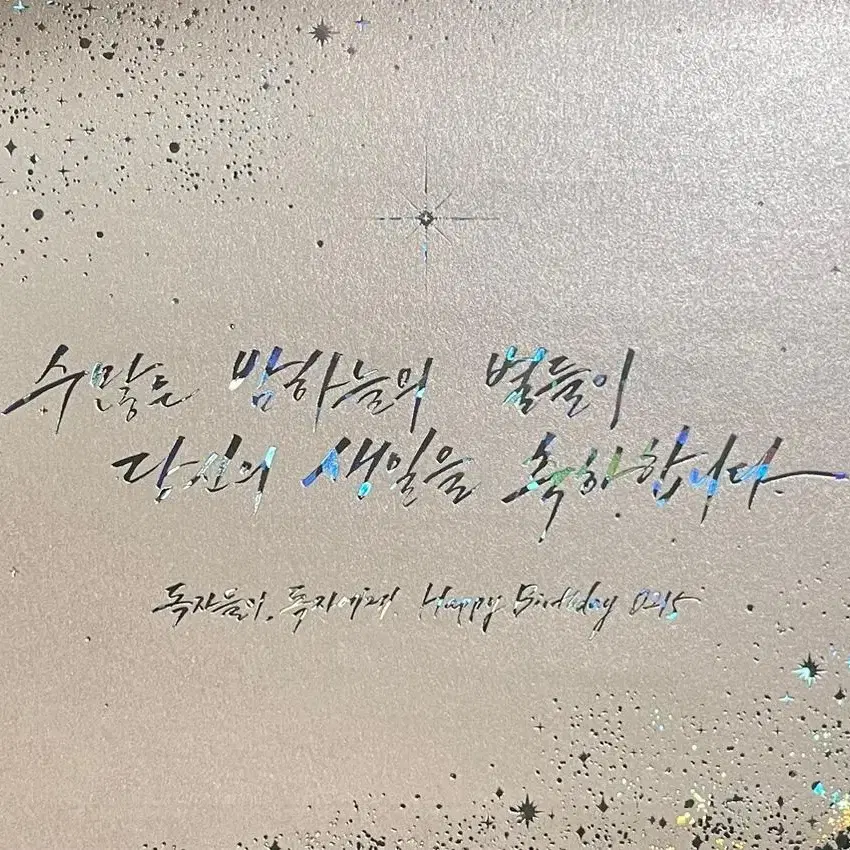 수많은 밤하늘의 별들이
당신의 생일을 축하합니다.
독자들이, 독자에게. Happy Birthday 0215